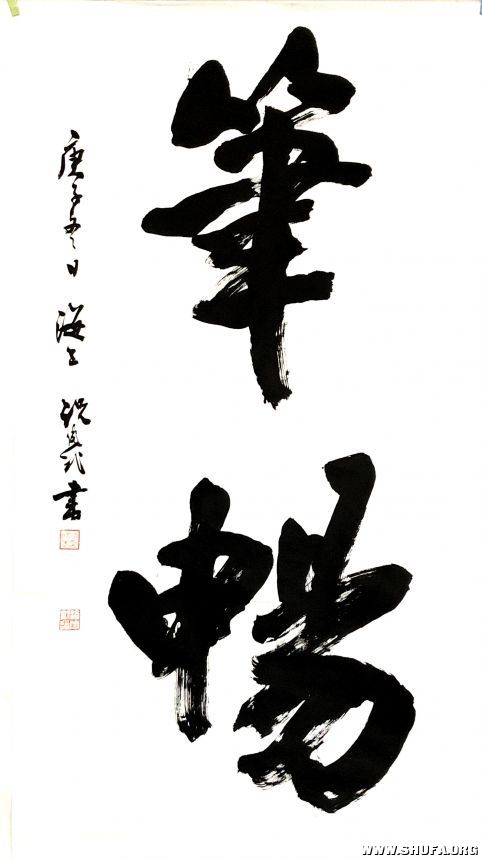 筆
暢
庚子冬日 海上
书
WWW.SHUFA.ORG